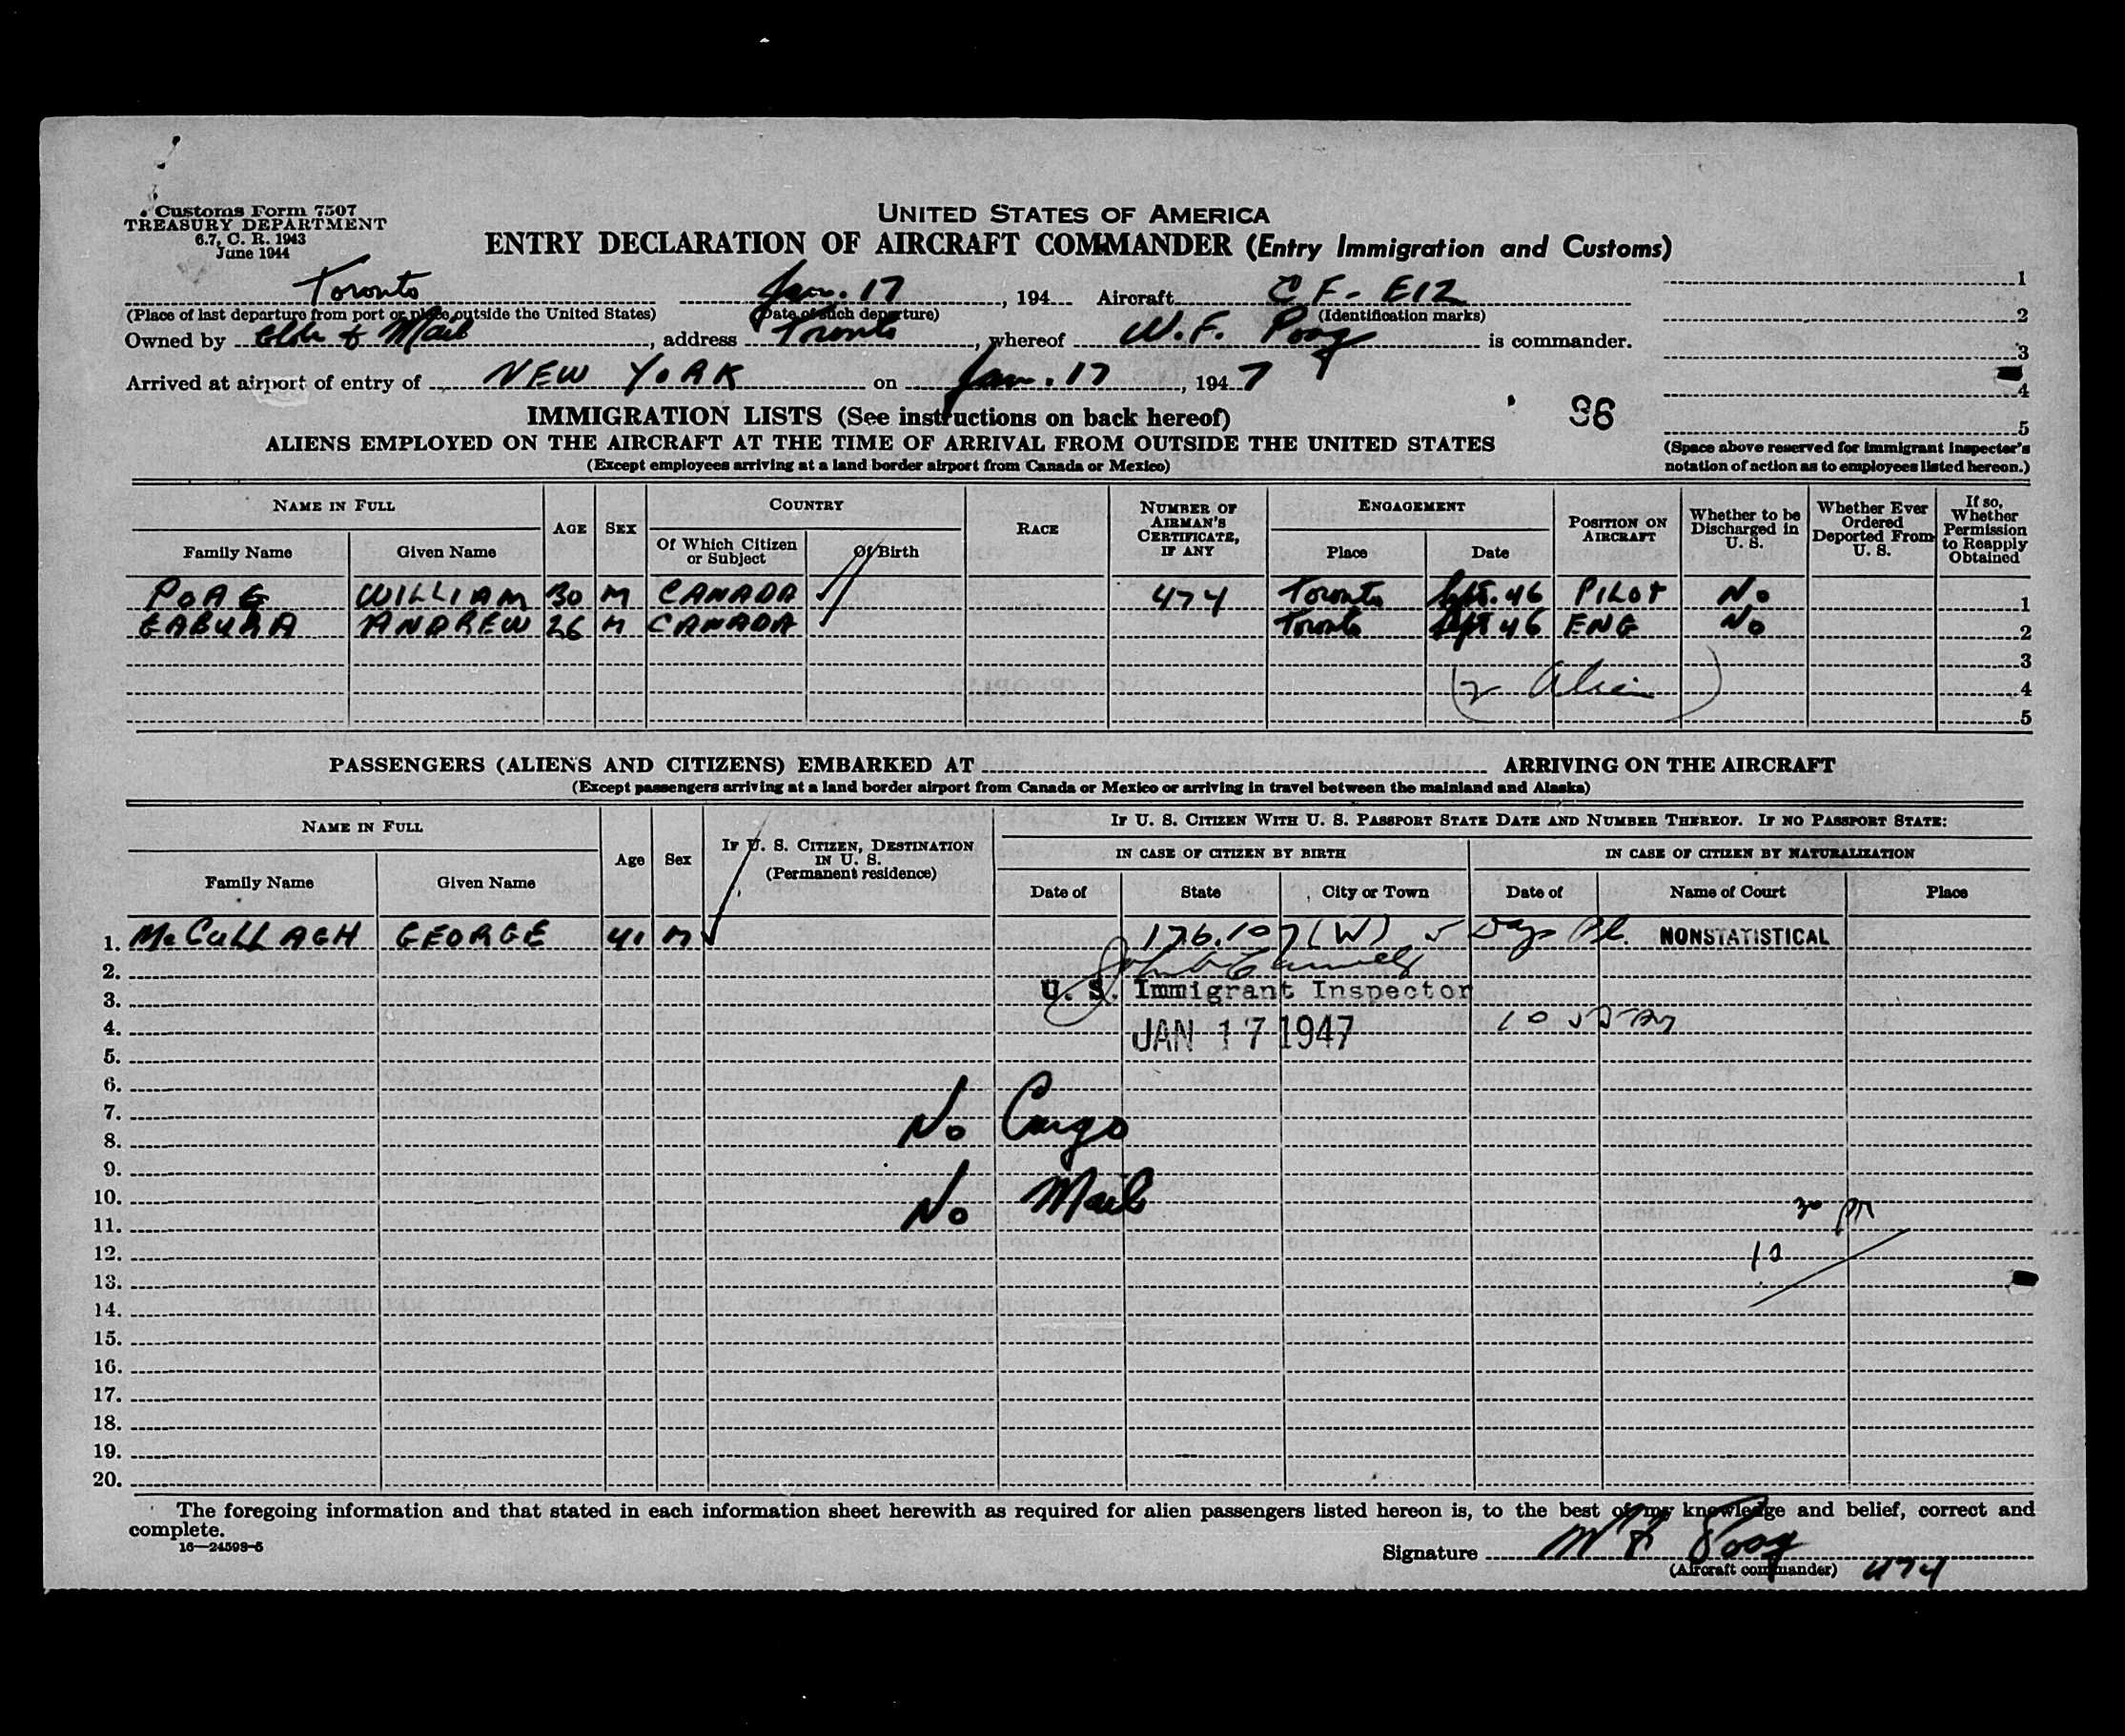 Customs Form 7507
TREASURY DEPARTMENT
6.7, C. R. 1943
June 1944
UNITED STATES OF AMERICA
ENTRY DECLARATION OF AIRCRAFT COMMANDER (Entry Immigration and Customs)
Toronto Jan. 17, 194 Aircraft CF-E12 1
(Place of last departure from port or place outside the United States) (Date of such departure) (Identification marks) 2
Owned by Globe & Mail, address Toronto, whereof W.F. Poag is commander. 3
Arrived at airport of entry of NEW YORK on Jan. 17, 1947 4
IMMIGRATION LISTS (See instructions on back hereof) 36 5
ALIENS EMPLOYED ON THE AIRCRAFT AT THE TIME OF ARRIVAL FROM OUTSIDE THE UNITED STATES (Space above reserved for immigrant inspector's
(Except employees arriving at a land border airport from Canada or Mexico) notation of action as to employees listed hereon.)
NAME IN FULL AGE SEX COUNTRY RACE NUMBER OF AIRMAN'S CERTIFICATE, IF ANY ENGAGEMENT POSITION ON AIRCRAFT Whether to be Discharged in U. S. Whether Ever Ordered Deported From U. S. If so, Whether Permission to Reapply Obtained
Family Name Given Name Of Which Citizen or Subject Of Birth Place Date
POAG WILLIAM 30 M CANADA 474 Toronto Sept. 46 PILOT No 1
GABURA ANDREW 26 M CANADA Toronto Sept 46 ENG No 2
3
(2 Alien) 4
5
PASSENGERS (ALIENS AND CITIZENS) EMBARKED AT ARRIVING ON THE AIRCRAFT
(Except passengers arriving at a land border airport from Canada or Mexico or arriving in travel between the mainland and Alaska)
NAME IN FULL Age Sex IF U. S. CITIZEN, DESTINATION IN U. S. (Permanent residence) IF U. S. CITIZEN WITH U. S. PASSPORT STATE DATE AND NUMBER THEREOF. IF NO PASSPORT STATE:
IN CASE OF CITIZEN BY BIRTH IN CASE OF CITIZEN BY NATURALIZATION
Family Name Given Name Date of State City or Town Date of Name of Court Place
1. McCULLAGH GEORGE 41 M 176.107(W) 5 Days NONSTATISTICAL
2.
3. U. S. Immigrant Inspector
4. JAN 17 1947
5.
6.
7. No Cargo
8.
9.
10. No Mail
11.
12.
13.
14.
15.
16.
17.
18.
19.
20.
The foregoing information and that stated in each information sheet herewith as required for alien passengers listed hereon is, to the best of my knowledge and belief, correct and
complete.
16—24598-5
Signature W F Poag
(Aircraft commander) 474